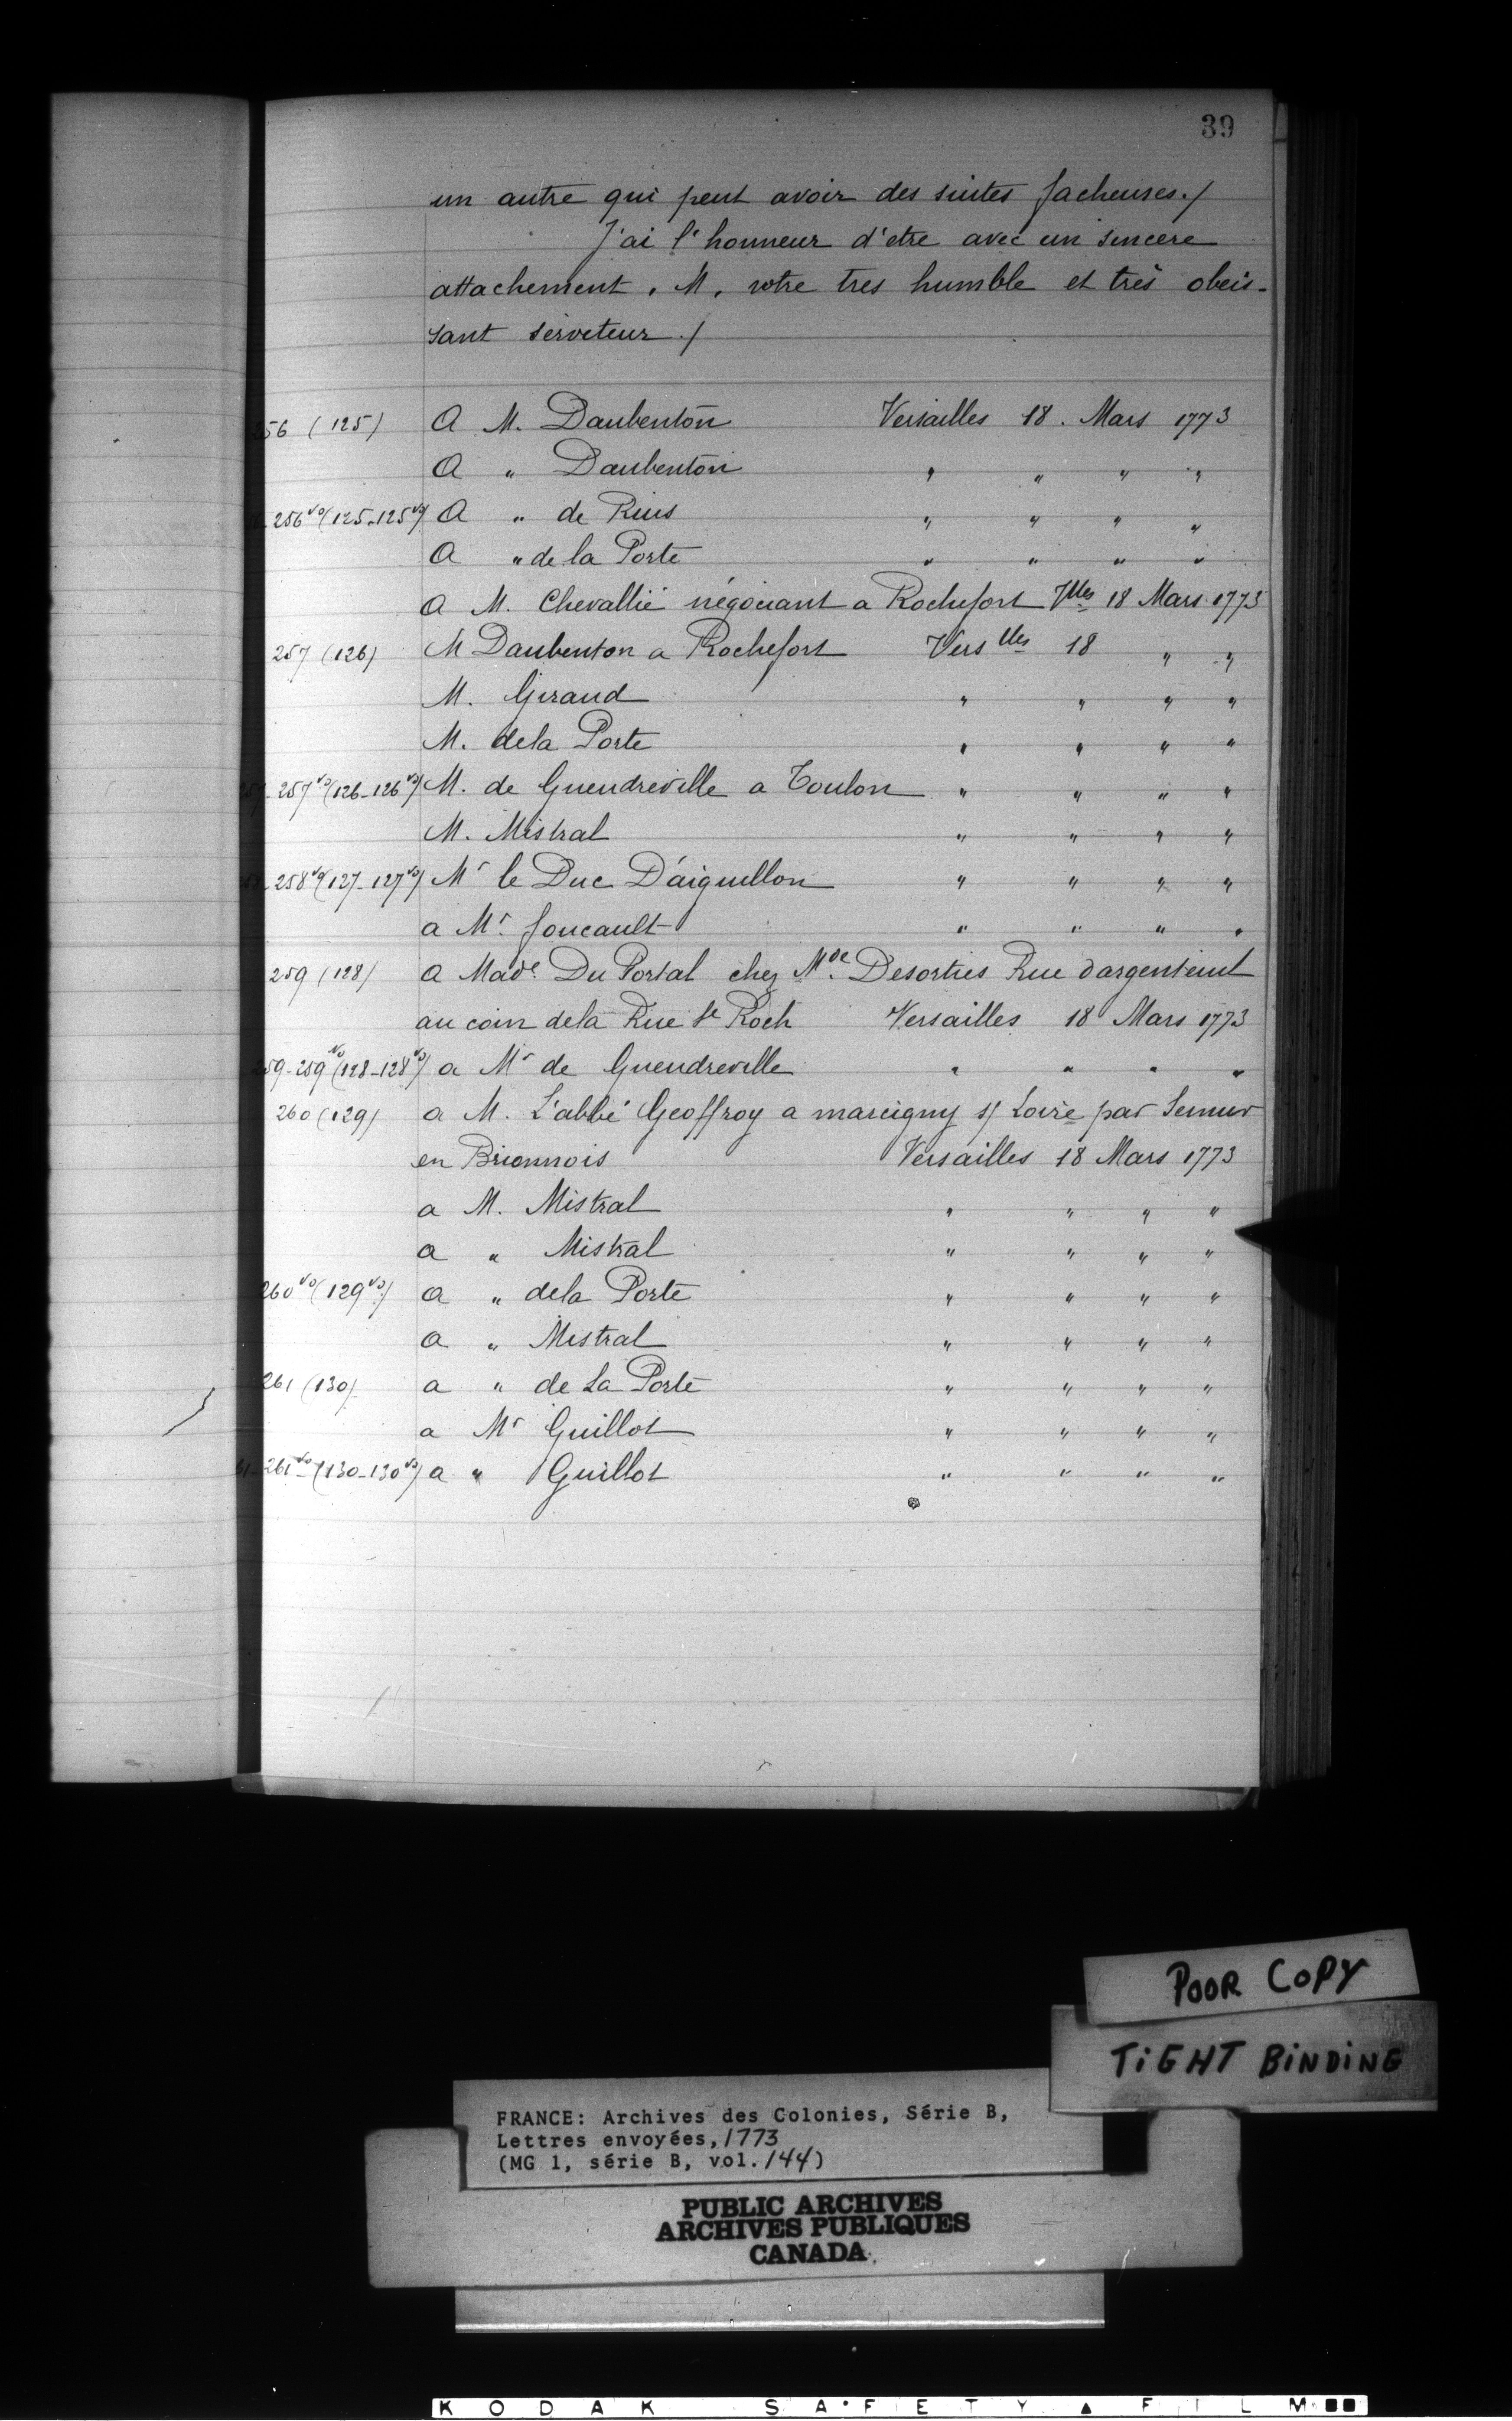 39
un autre qui peut avoir des suites facheuses./
J'ai l'honneur d'etre avec un sincere
attachement, M, votre tres humble et très obéis-
sant serveteur./
256 (125) A M. Daubenton Versailles 18. Mars 1773
A " Daubenton " " " "
256 vo (125-125 vo) A " de Rius " " " "
A " de la Porte " " " "
A M. Chevallié négociant a Rochefort Vlles 18 Mars 1773
257 (126) M Daubenton a Rochefort Vers lles 18 " "
M. Giraud " " " "
M. dela Porte " " " "
257 vo (126-126 vo) M. de Guendreville a Toulon " " " "
M. Mistral " " " "
258 vo (127-127 vo) Mr le Duc D'aiguillon " " " "
a Mr. foucault " " " "
259 (128) a Made. Du Portal chez Mde. Desortres Rue dargenteuil
au coin dela Rue St Roch Versailles 18 Mars 1773
259-259 vo (128-128 vo) a Mr de Guendreville " " " "
260 (129) a M. L'abbé Geoffroy a marcigny s/ Loire par Semur
en Brionnois Versailles 18 Mars 1773
a M. Mistral " " " "
a " Mistral " " " "
260 vo (129 vo) a " dela Porte " " " "
a " Mistral " " " "
261 (130) a " de La Porte " " " "
a Mr Guillot " " " "
261 vo (130-130 vo) a " Guillot " " " "
POOR COPY
TiGHT BiNDiNG
FRANCE: Archives des Colonies, Série B,
Lettres envoyées, 1773
(MG 1, série B, vol. 144)
PUBLIC ARCHIVES
ARCHIVES PUBLIQUES
CANADA
KODAK SAFETY FILM